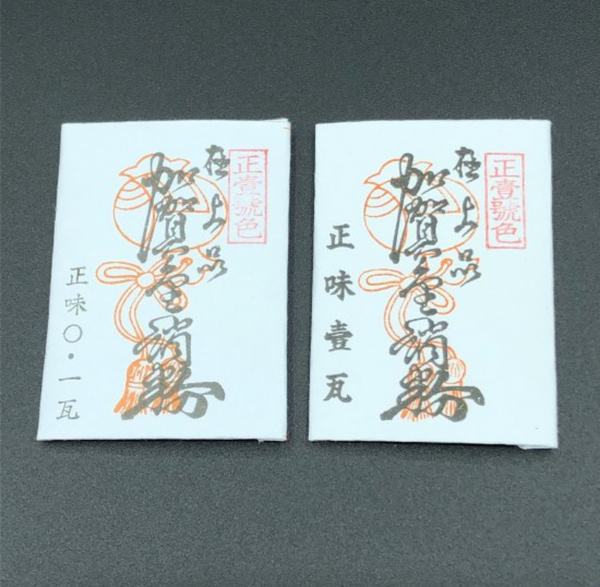 正壹號色
極上品
加賀金消粉
正味〇・一瓦
正壹號色
極上品
加賀金消粉
正味壹瓦